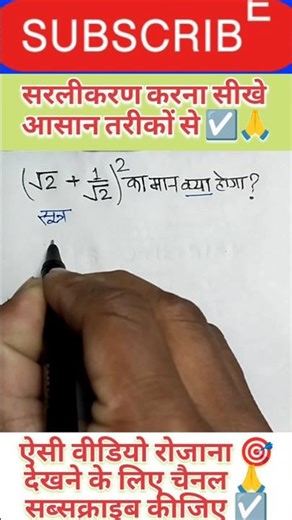 SUBSCRIBE
सरलीकरण करना सीखे
आसान तरीकों से ☑️🙏
(√2 + 1/√2)² का मान क्या होगा?
सूत्र
ऐसी वीडियो रोजाना 🎯
देखने के लिए चैनल 🙏
सब्सक्राइब कीजिए ☑️